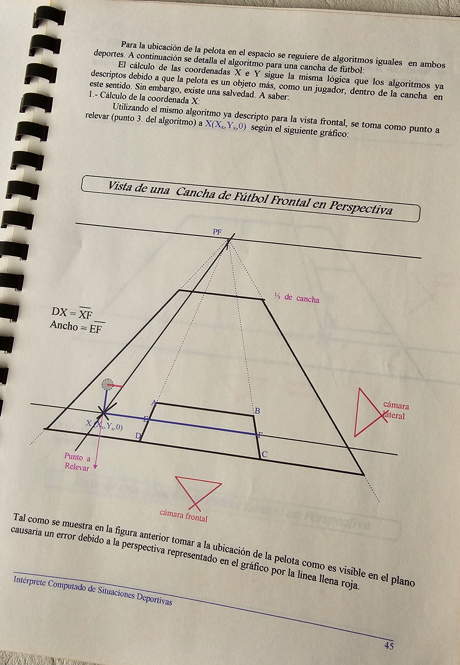 Para la ubicación de la pelota en el espacio se reguiere de algoritmos iguales en ambos
deportes. A continuación se detalla el algoritmo para una cancha de fútbol:
El cálculo de las coordenadas X e Y sigue la misma lógica que los algoritmos ya
descriptos debido a que la pelota es un objeto más, como un jugador, dentro de la cancha en
este sentido. Sin embargo, existe una salvedad. A saber:
1.- Cálculo de la coordenada X:
Utilizando el mismo algoritmo ya descripto para la vista frontal, se toma como punto a
relevar (punto 3. del algoritmo) a X(Xₓ,Yₓ,0) según el siguiente gráfico:
Vista de una Cancha de Fútbol Frontal en Perspectiva
PF
½ de cancha
DX = XF
Ancho = EF
cámara
lateral
A
B
X(Xₓ,Yₓ,0)
E
F
D
C
Punto a
Relevar
cámara frontal
Tal como se muestra en la figura anterior tomar a la ubicación de la pelota como es visible en el plano
causaría un error debido a la perspectiva representado en el gráfico por la linea llena roja.
Intérprete Computado de Situaciones Deportivas
45